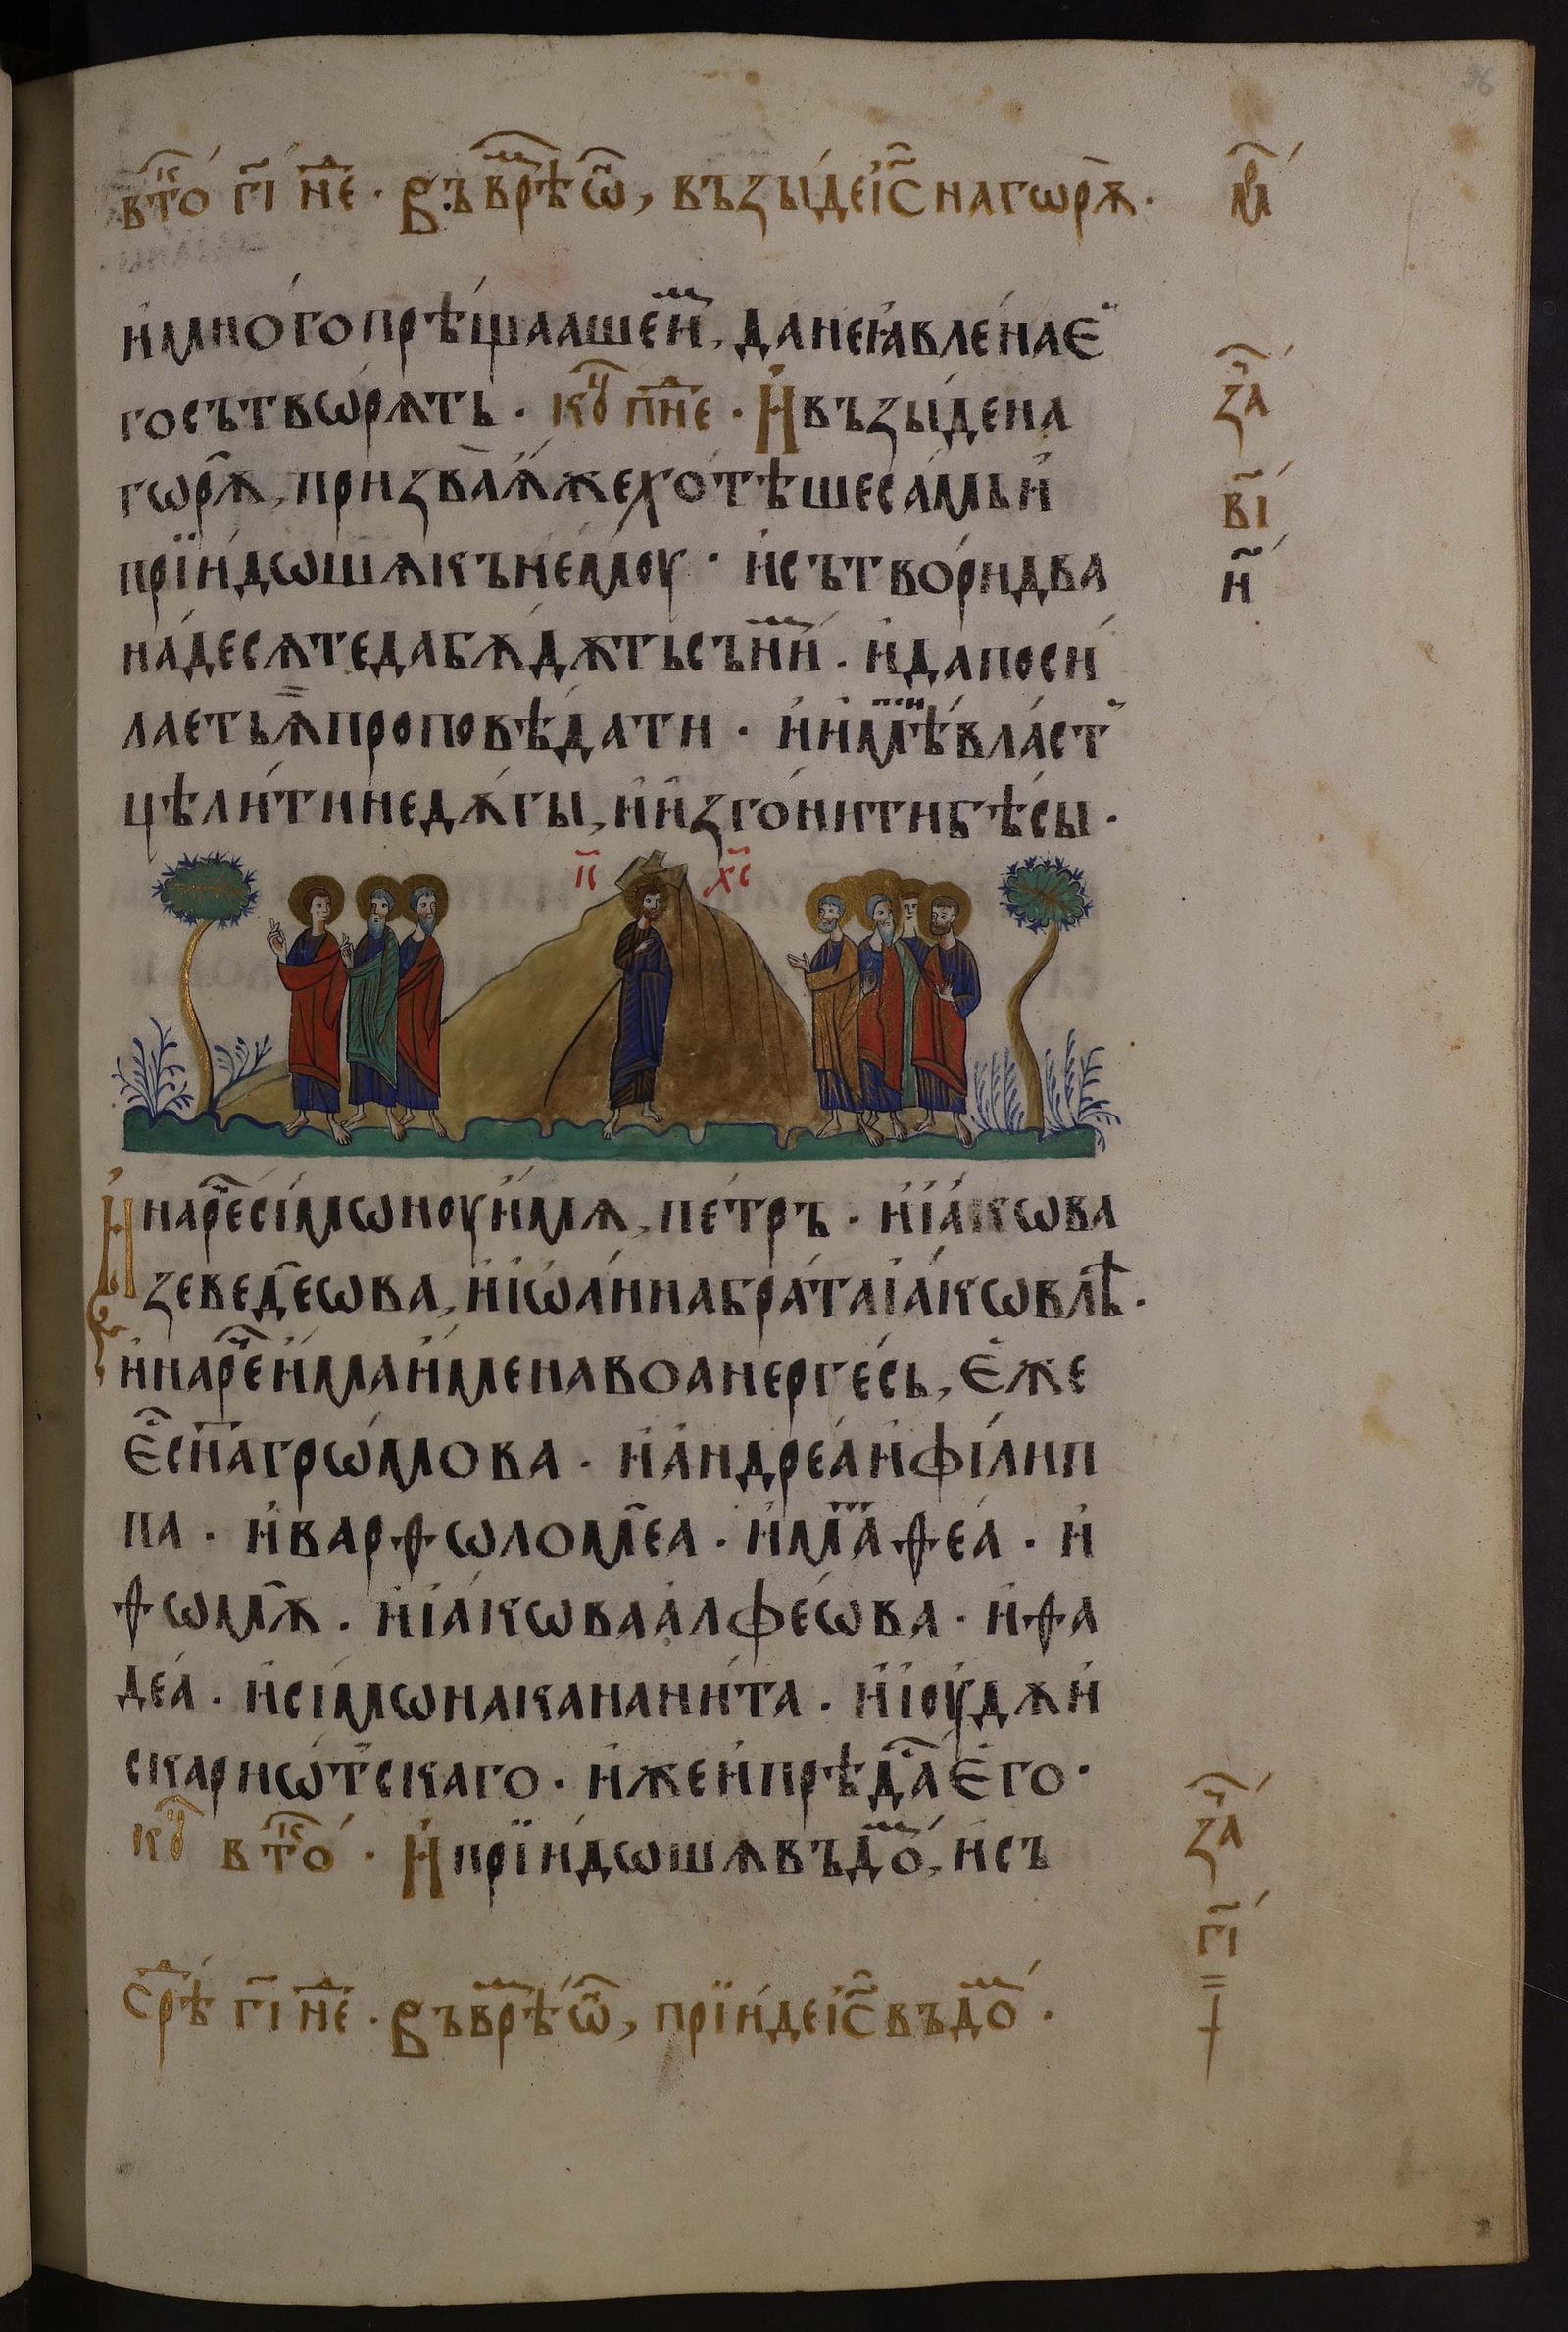 вто͗ к҃ г҃і нед҇е · Въ врѣ̑м ѡ҃, възы́де і҆с҃ на гѡрѫ̀ ·
мр҃
и҆ мно́го прѣ́щааше и҆м, да не ꙗ҆вле́на є҆
го сътвѡ́рѧть · кѡц҃ п нед҇е · И҆ възы́де на
за҃ч
гѡрѫ̀, призва̀ ѫ҆же хо́тѣше са́мь и҆
в҃і
прїи́дошѧ къ не́моу · и҆ сътво́ри два
н҃
на́десѧте да бѫ́дѫть съ ни́м · и҆ да поси́
лаеть ѫ҆ проповѣ́дати · и҆ и҆мѣ́ти вла́ст
цѣли́ти недѫ́гы, и҆ и҆зго́нити бѣ́сы ·
і҃с х҃с
И҆ наре́че сі́мѡноу и҆́мѧ, пе́тръ · и҆ і҆а́кѡва
зеведе́ѡва, и҆ і҆ѡа́нна бра́та і҆а́кѡвлѣ ·
и҆ наре́че и҆́ма и҆мена воанерге́сь, є҆́же
є҆с҇ сн҃а грѡ́мова · и҆ а҆ндре́а и҆ фі́лип
па · и҆ варѳѡломе́а · и҆ мат҇ѳе́а · и҆
ѳѡмѫ̀ · и҆ і҆а́кѡва а҆лфе́ѡва · и҆ ѳа
де́а · и҆ сі́мѡна канани́та · и҆ і҆оу́дѫ и҆
скариѡ́тскаго · и҆же и҆ прѣда́с҇ є҆го ·
кѡц҃ вто͗ к҃ · И҆ прїи́дошѧ въ до́м, и҆ съ
за҃ч
г҃і
срѣ́д҇ г҃і нед҇е · Въ врѣ́м ѡ҃, прїи́де і҆с҃ въ до́м ·